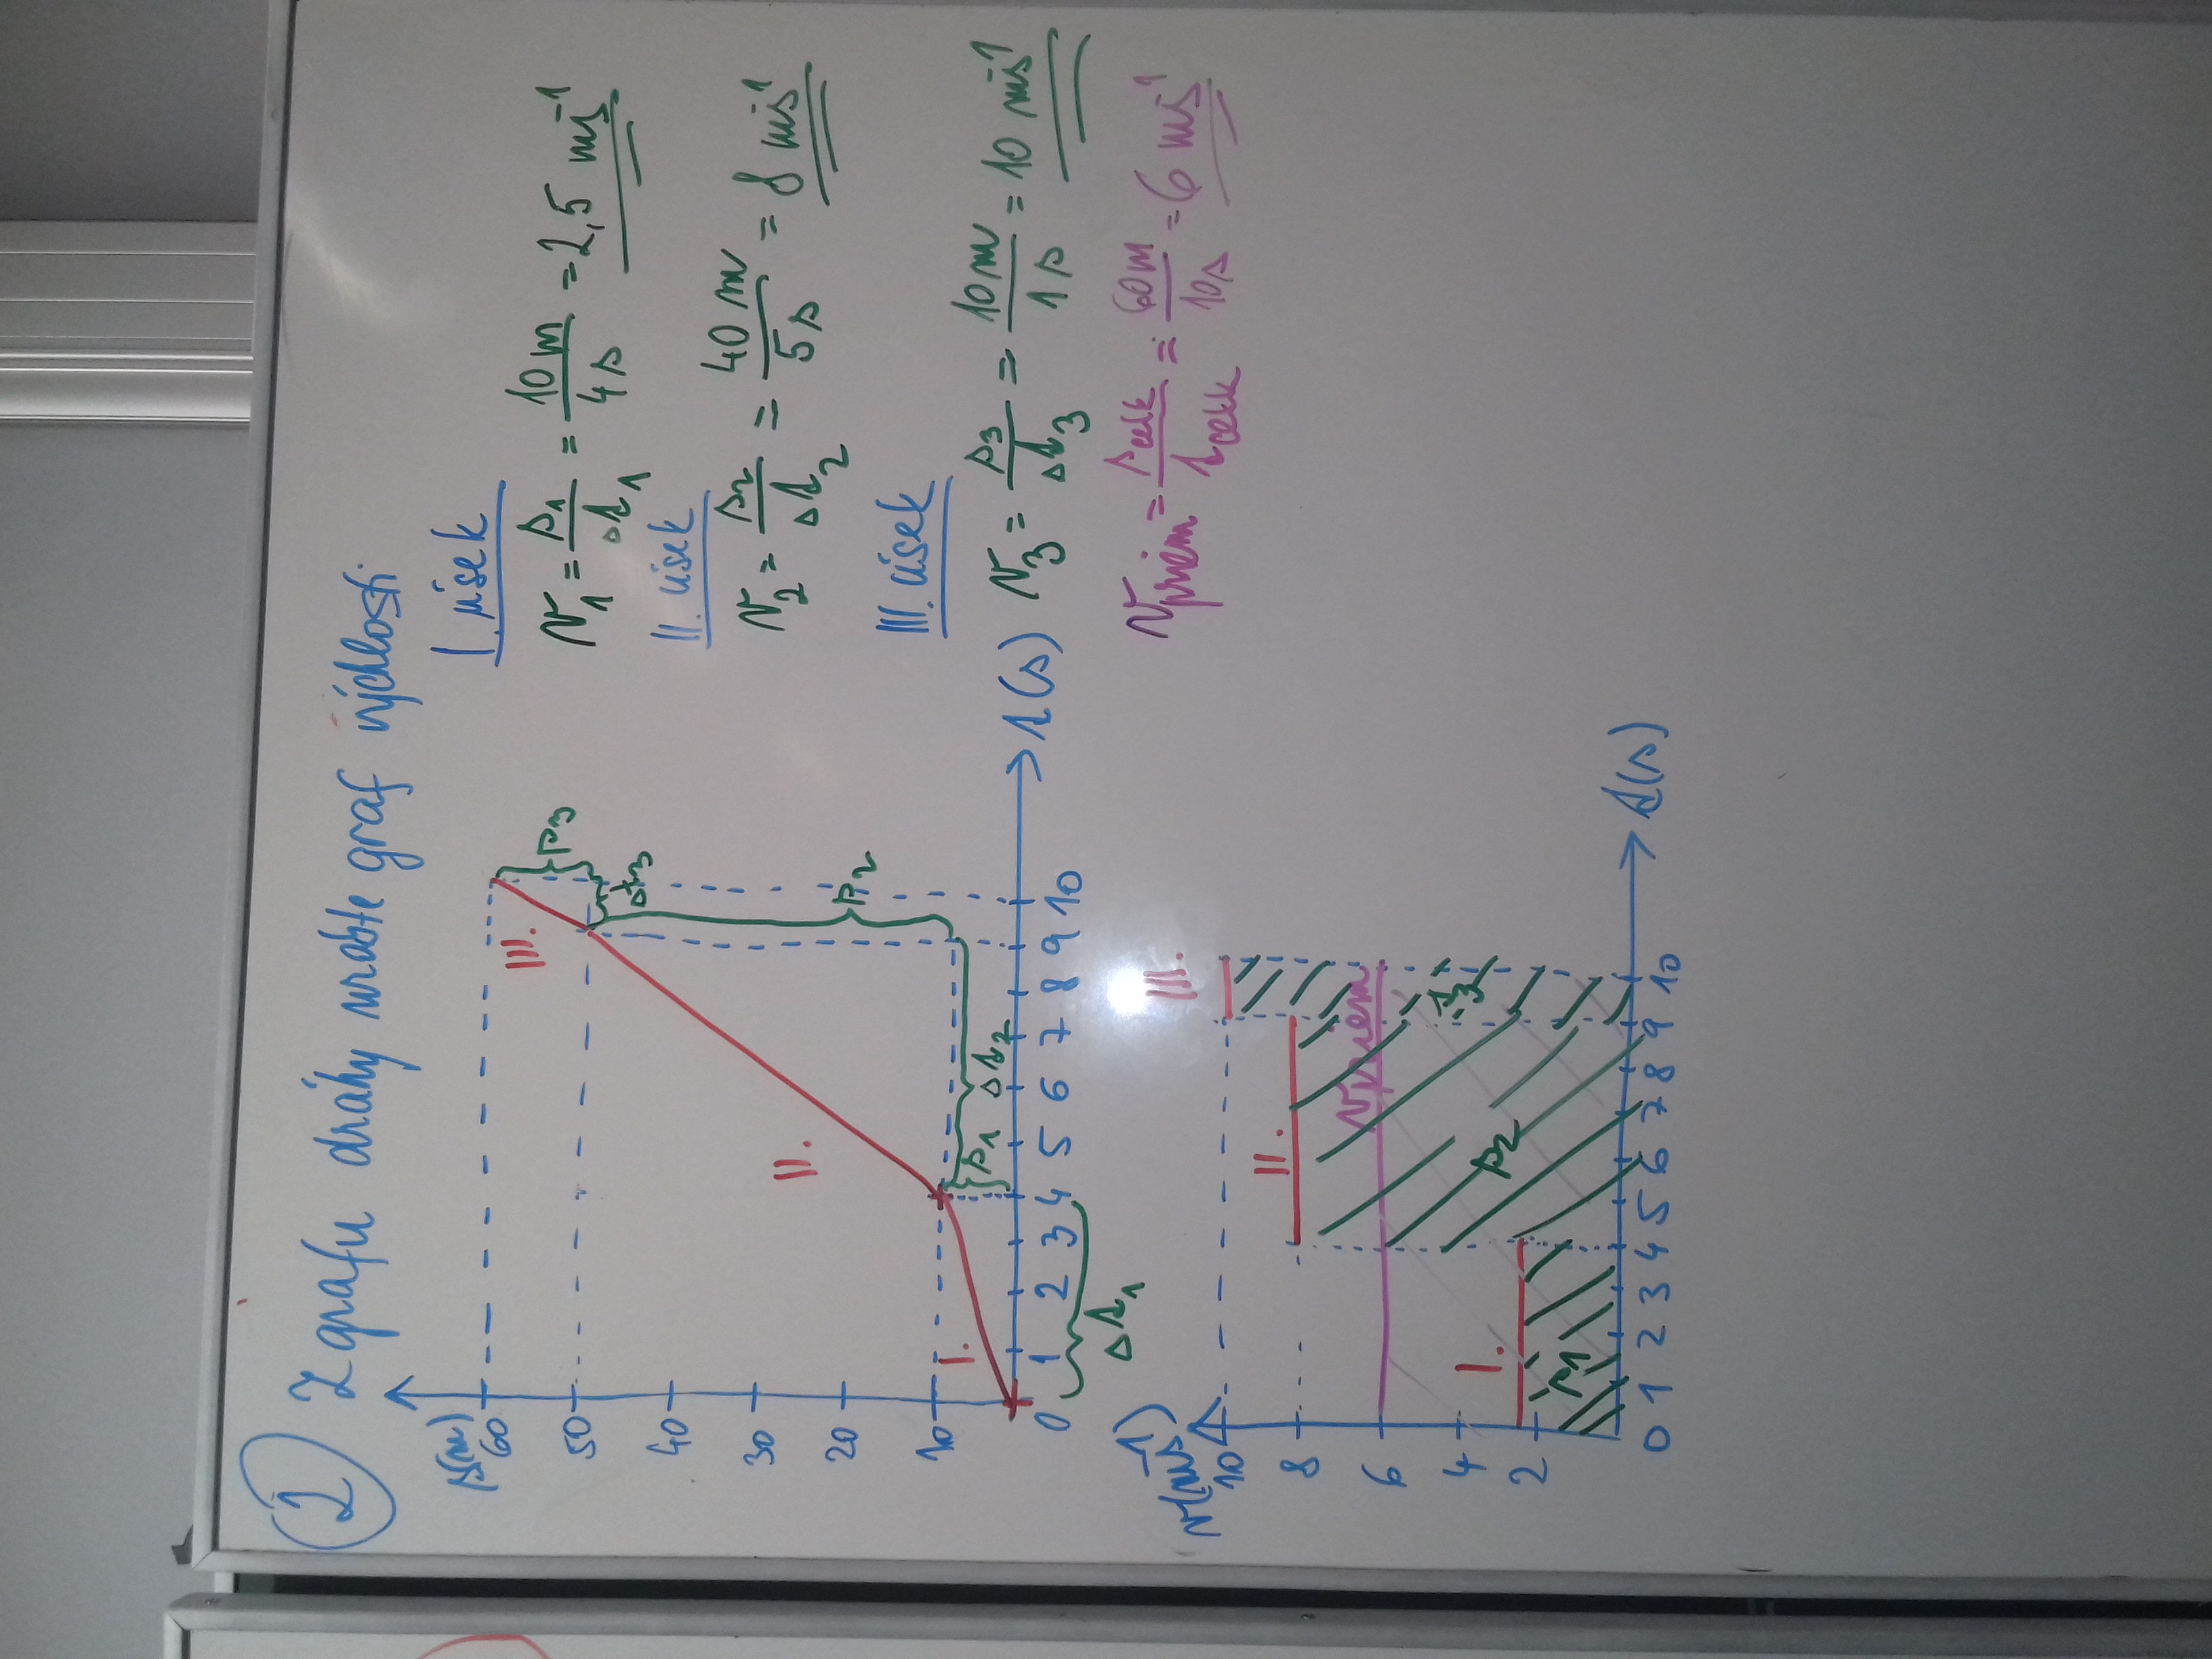 1 Z grafu dráhy urobte graf rýchlosti
s(m)
60
50
40
30
20
10
0 1 2 3 4 5 6 7 8 9 10 t(s)
I. II. III.
Δt₁ s₁ Δt₂ s₂ Δt₃ s₃
I. úsek
v₁ = s₁/Δt₁ = 10m/4s = 2,5 ms⁻¹
II. úsek
v₂ = s₂/Δt₂ = 40m/5s = 8 ms⁻¹
III. úsek
v₃ = s₃/Δt₃ = 10m/1s = 10 ms⁻¹
vpriem = scelk/tcelk = 60m/10s = 6 ms⁻¹
v(ms⁻¹)
10
8
6
4
2
0 1 2 3 4 5 6 7 8 9 10 t(s)
I. II. III.
vpriem
s₁ s₂ s₃